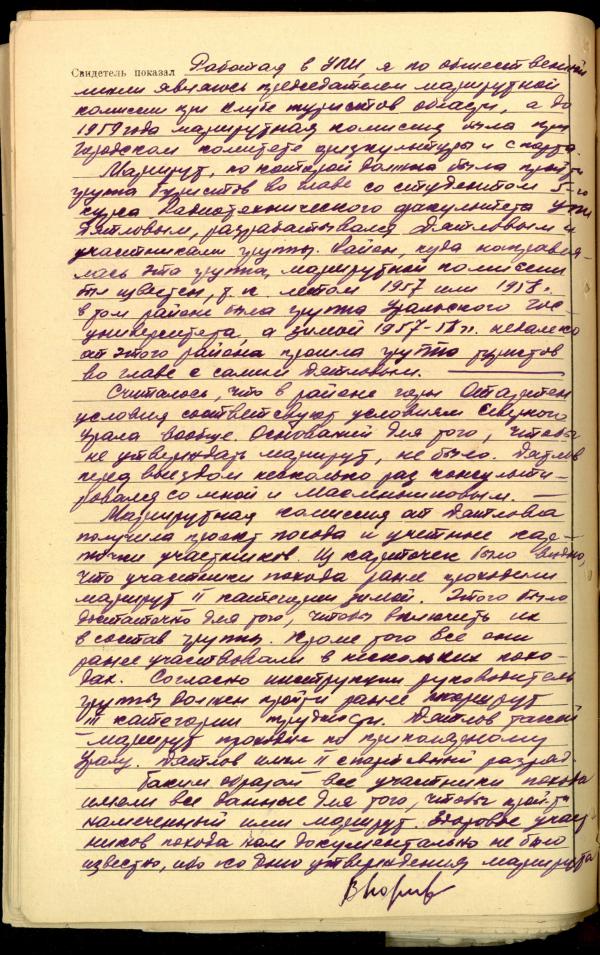 Свидетель показал Работая в УПИ, я по общественной
линии являюсь председателем маршрутной
комиссии при клубе туристов области, а до
1959 года маршрутная комиссия была при
городском комитете физкультуры и спорта.
Маршрут, по которой должна была пройти
группа туристов во главе со студентом 5-го
курса Радиотехнического факультета УПИ
Дятловым, разрабатывался Дятловым и
участниками группы. Район, куда направля-
лась эта группа, маршрутной комиссии
был известен, т.к. летом 1957 или 1958г.
в том районе была группа Уральского Гос-
университета, а зимой 1957-58гг. недалеко
от этого района прошла группа туристов
во главе с самим Дятловым.
Считалось, что в районе горы Отортен
условия соответствуют условиям Северного
Урала вообще. Оснований для того, чтобы
не утверждать маршрут, не было. Дятлов
перед выездом несколько раз консульти-
ровался со мной и Масленниковым.
Маршрутная комиссия от Дятлова
получила проект похода и учетные кар-
точки участников. Из карточек было видно,
что участники похода ранее проходили
маршрут II категории зимой. Этого было
достаточно для того, чтобы включить их
в состав группы. Кроме того все они
ранее участвовали в нескольких похо-
дах. Согласно инструкции руководитель
группы должен пройти ранее маршрут
III категории трудности. Дятлов такой
маршрут проходил по приполярному
Уралу. Дятлов имел II спортивный разряд.
Таким образом все участники похода
имели все данные для того, чтобы пройти
намеченный ими маршрут. Здоровье участ-
ников похода нам документально не было
известно, ибо ко дню утверждения маршрута